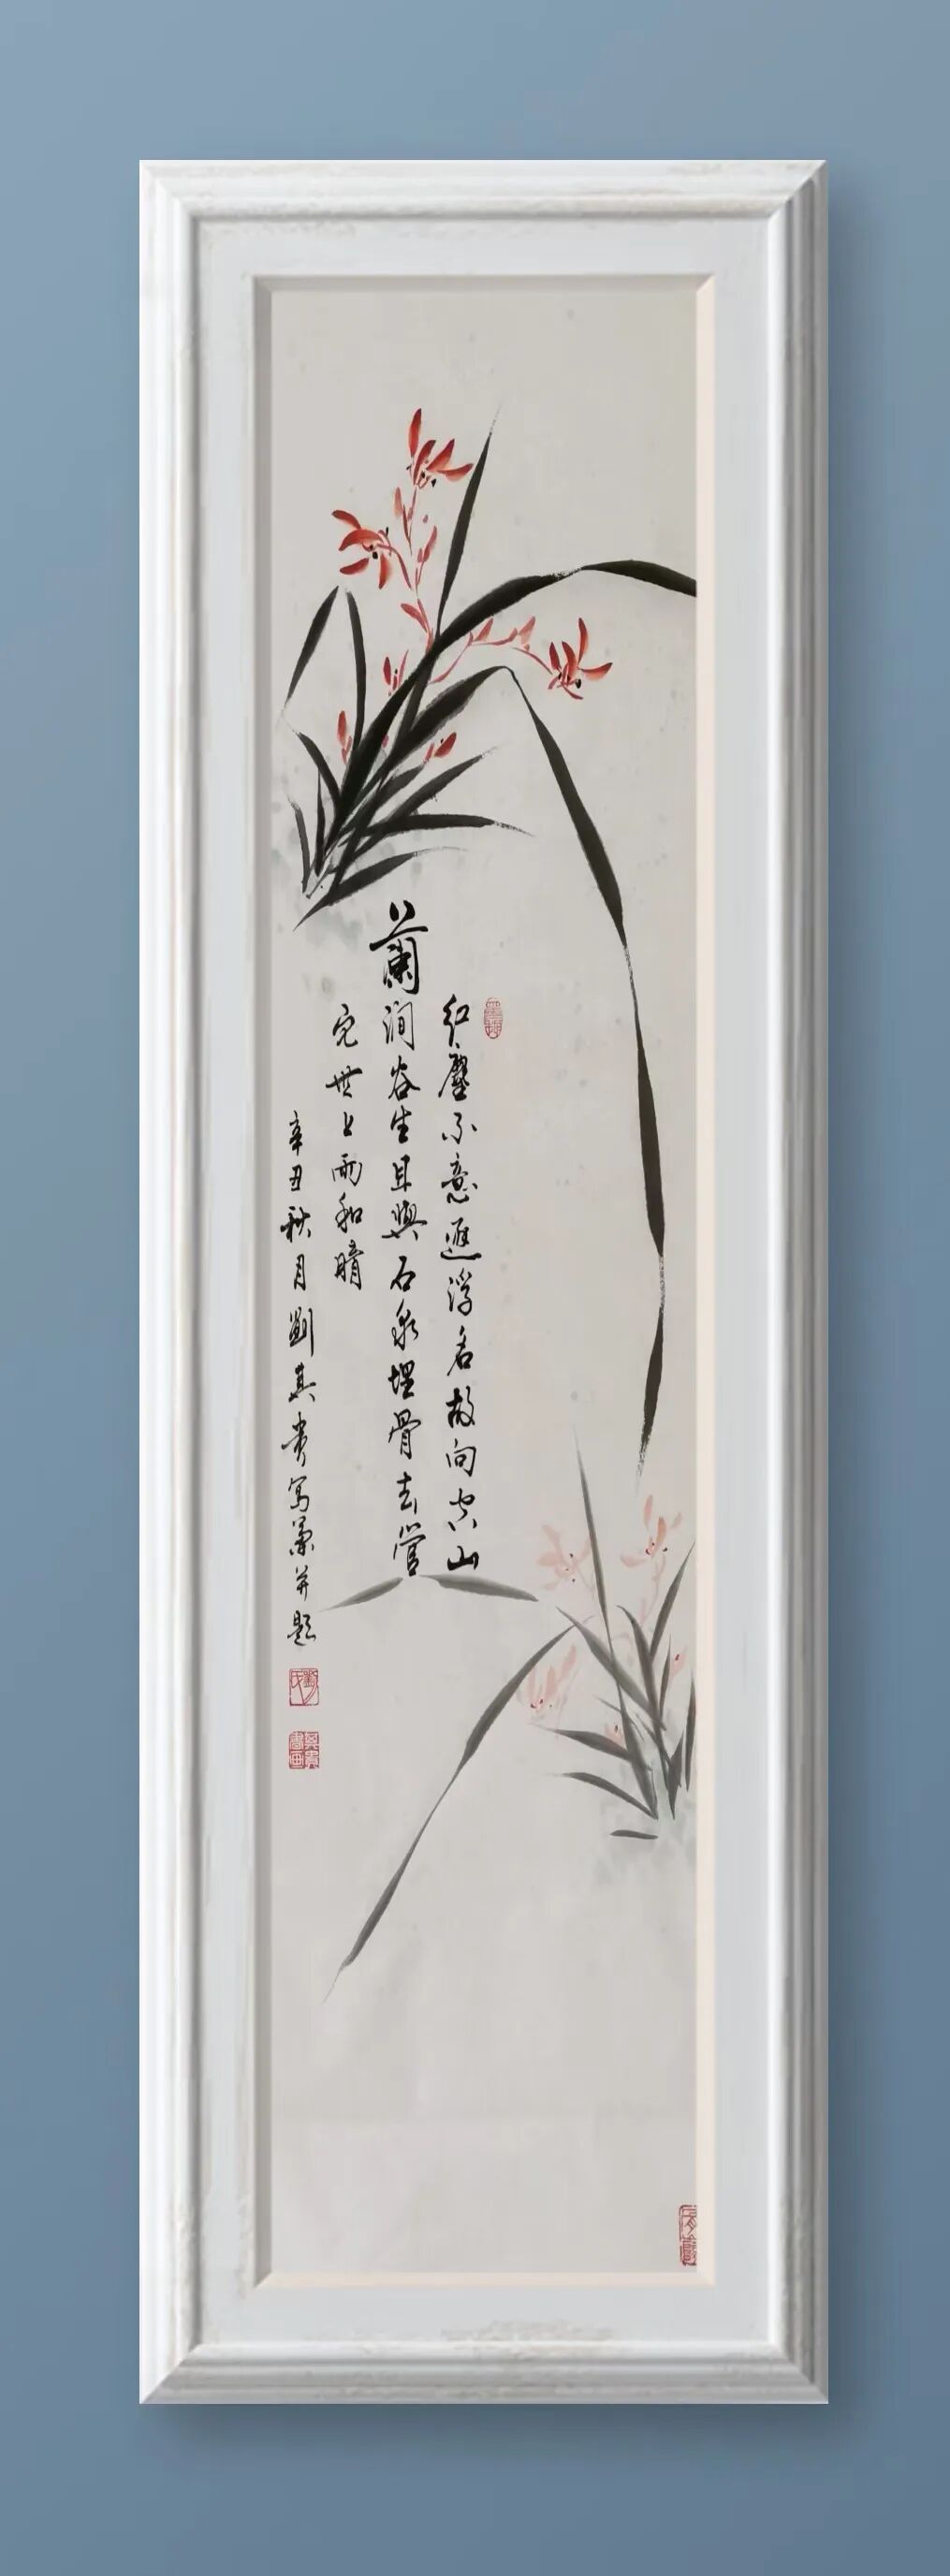 蘭
紅塵不意逐浮名故向空山
澗谷生且與石泉埋骨去管
它世上雨和晴
辛丑秋月劉其貴寫蘭并題
劉氏
其貴書画